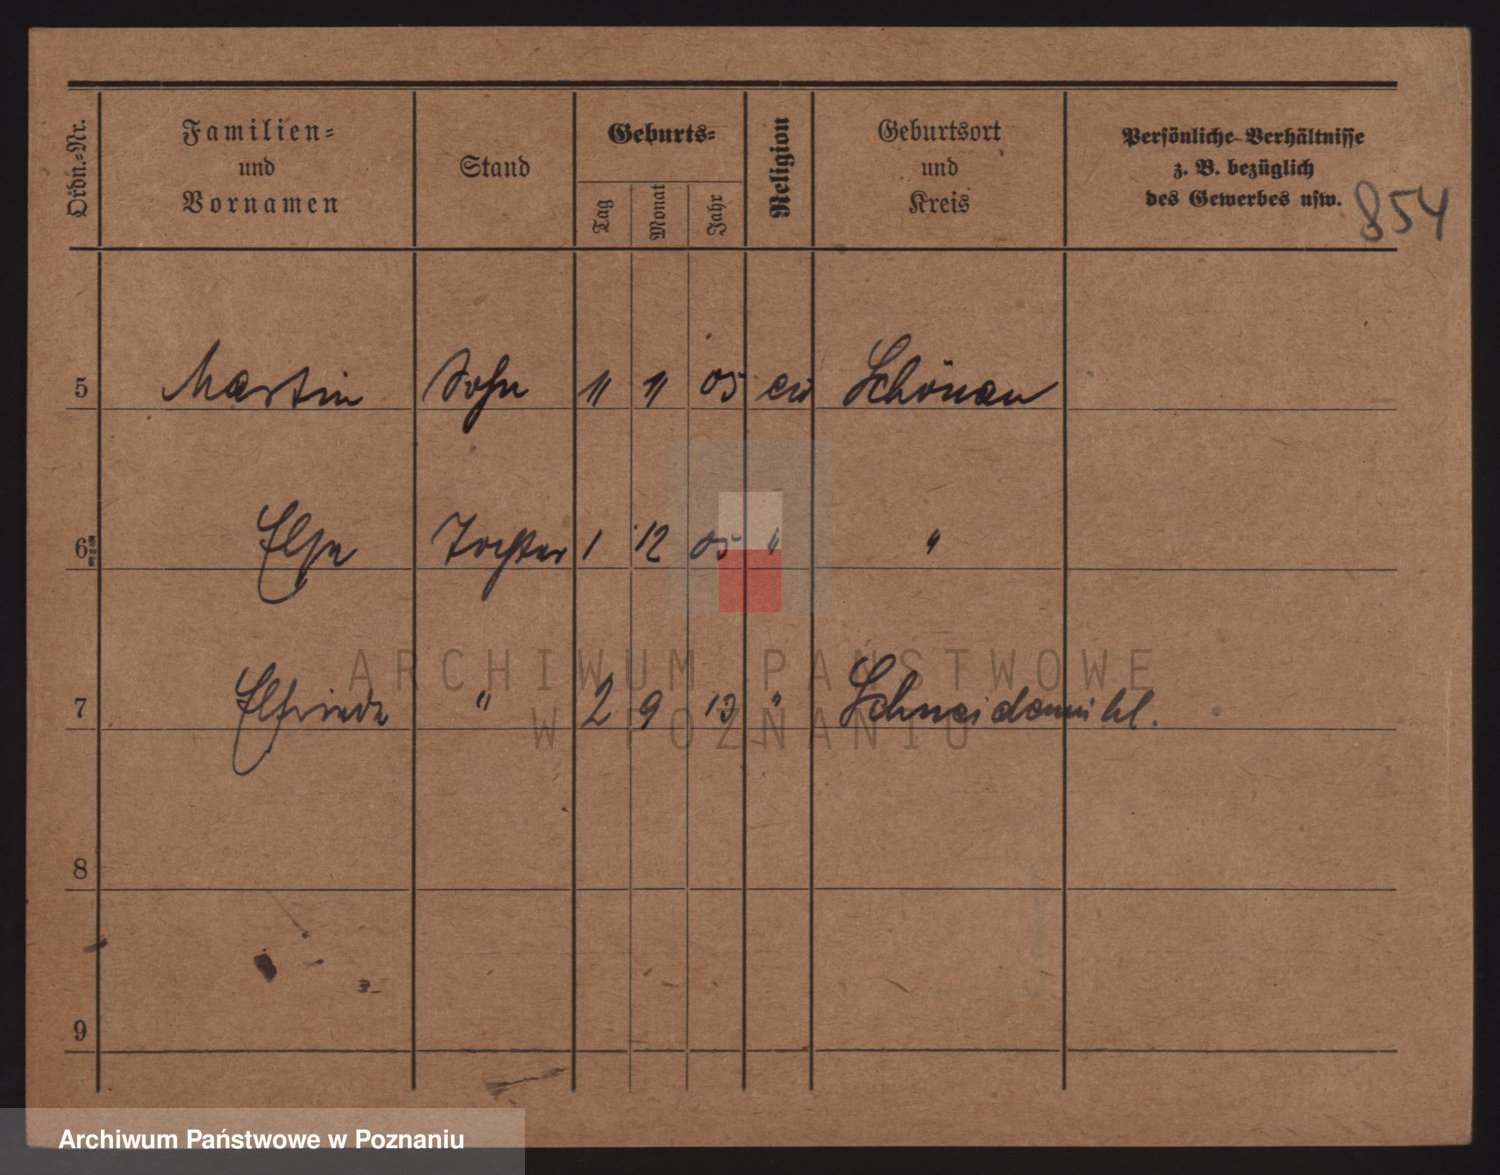 Ordn.-Nr.
Familien-
und
Vornamen
Stand
Geburts-
Tag
Monat
Jahr
Religion
Geburtsort
und
Kreis
Persönliche Verhältnisse
z. B. bezüglich
des Gewerbes usw.
854
5 Martin Sohn 11 11 05 ev Schönau
6 Else Tochter 1 12 05 " "
7 Elfriede " 2 9 13 " Schneidemühl.
8
9
ARCHIWUM PAŃSTWOWE
W POZNANIU
Archiwum Państwowe w Poznaniu